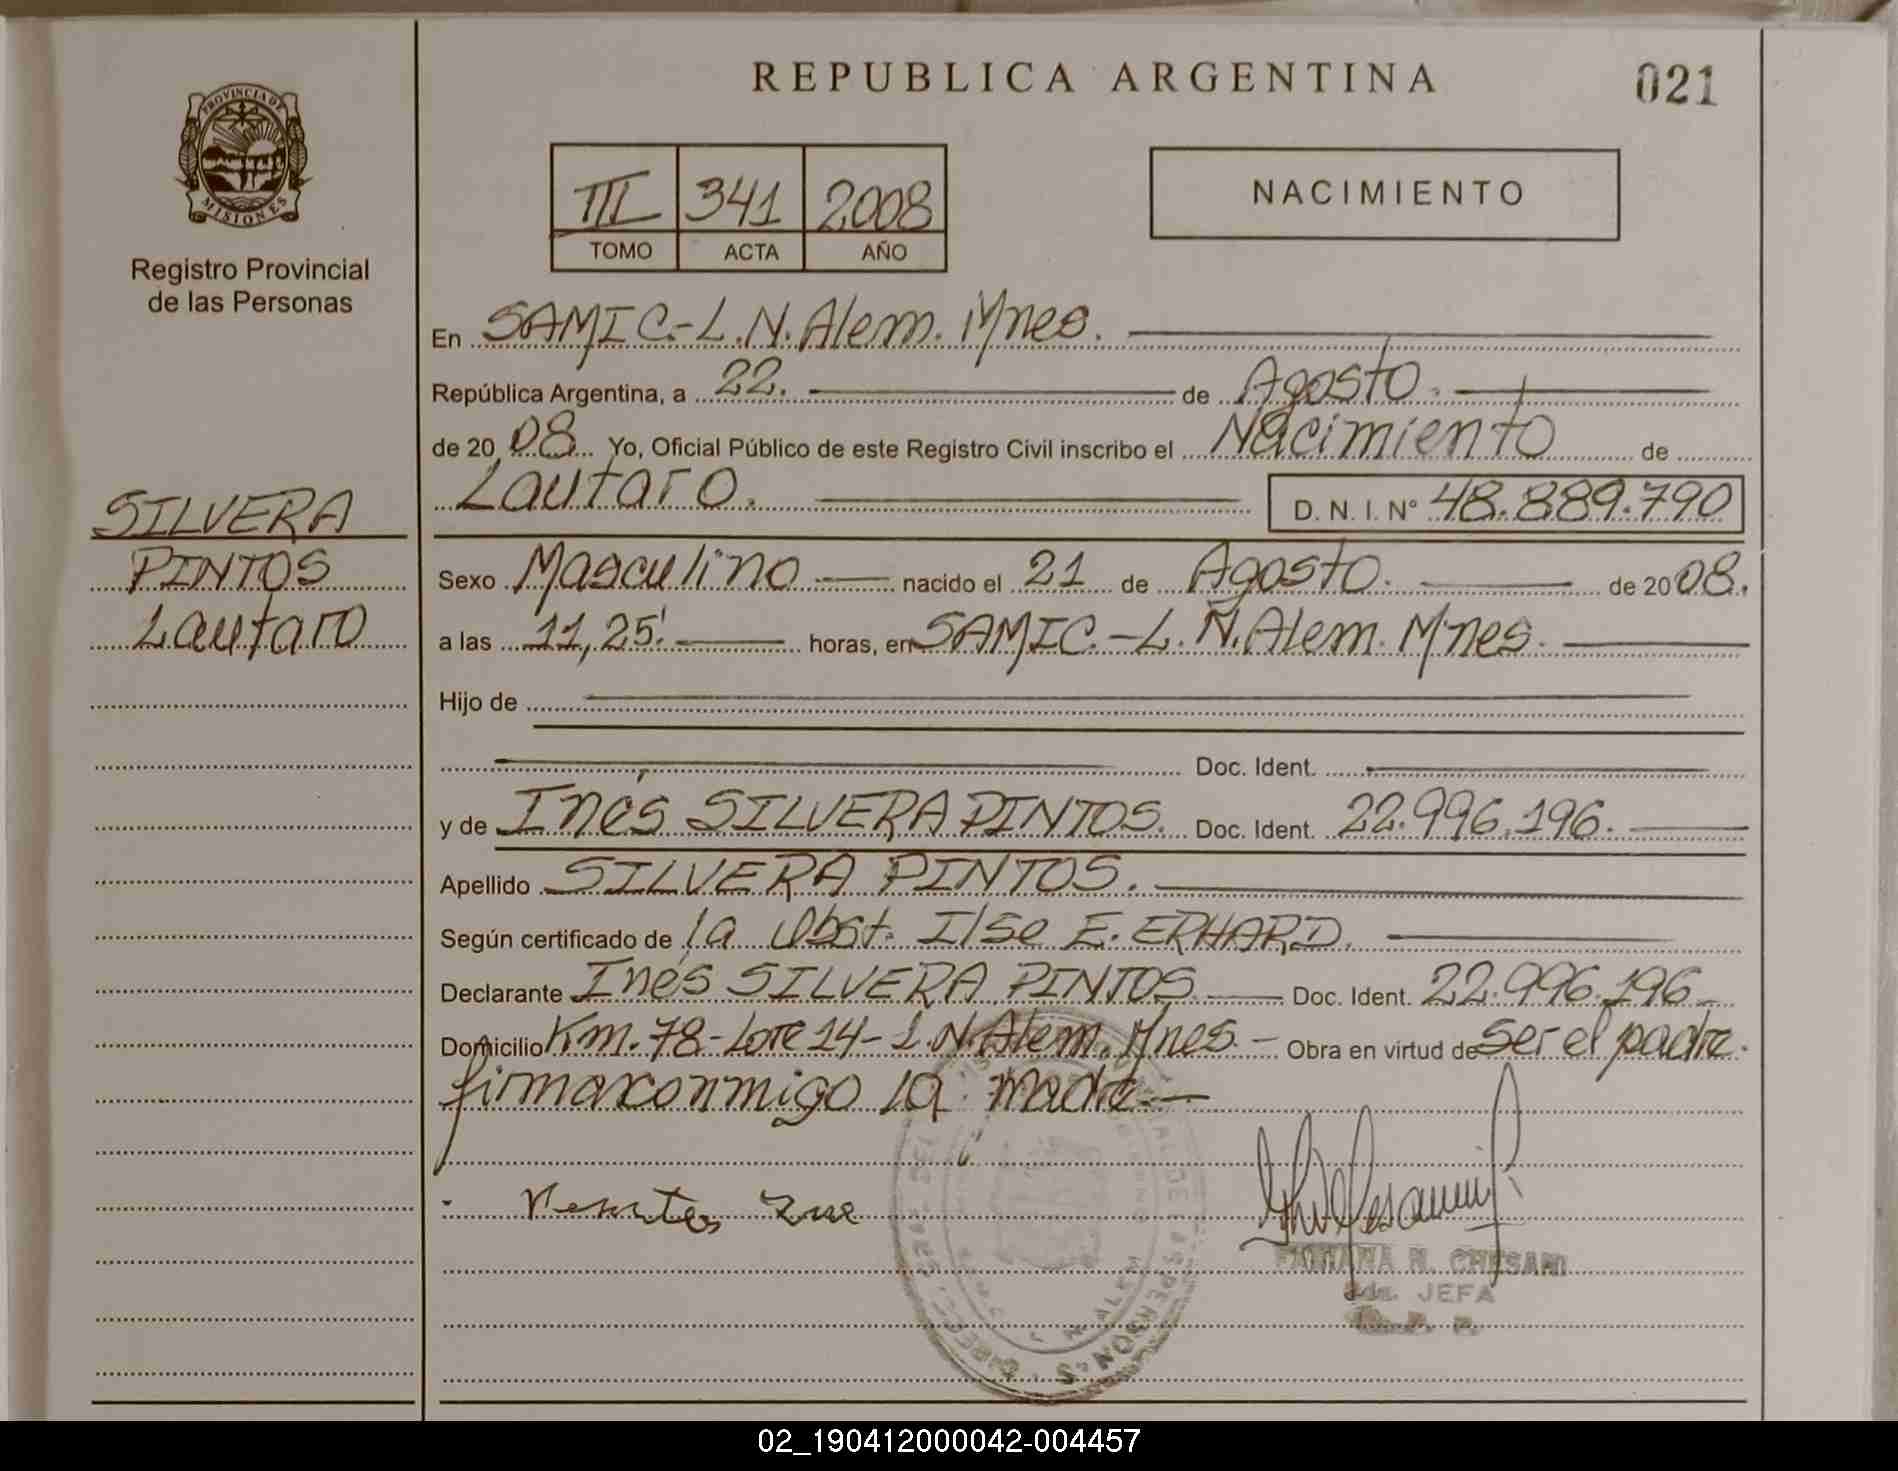 REPUBLICA ARGENTINA
021
PROVINCIA DE
MISIONES
Registro Provincial
de las Personas
III 341 2008
TOMO ACTA AÑO
NACIMIENTO
En SAMIC.-L.N.Alem. Mnes.
República Argentina, a 22. de Agosto.
de 20 08 Yo, Oficial Público de este Registro Civil inscribo el Nacimiento de
Lautaro. D. N. I. N° 48.889.790
SILVERA
PINTOS
Lautaro
Sexo Masculino nacido el 21 de Agosto. de 20 08.
a las 11,25'. horas, en SAMIC.-L. N. Alem. Mnes.
Hijo de
Doc. Ident.
y de Inés SILVERA PINTOS. Doc. Ident. 22.996.196.
Apellido SILVERA PINTOS.
Según certificado de la Obst. Ilse E. ERHARD.
Declarante Inés SILVERA PINTOS. Doc. Ident. 22.996.196
Domicilio Km. 78-Lote 14-L.N.Alem. Mnes. - Obra en virtud de ser el padre.
firma conmigo la madre.-
N. CHESANI
JEFA
02_190412000042-004457